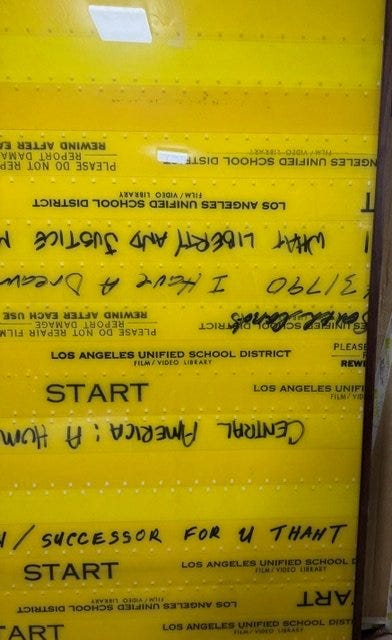 REWIND AFTER EA
REPORT DAMA
PLEASE DO NOT REP
FILM / VIDEO LIBRARY
LOS ANGELES UNIFIED SCHOOL DISTRICT
FILM / VIDEO LIBRARY
LOS ANGELES UNIFIED SCHOOL DISTRICT
WHAT LIBERTY AND JUSTICE M
31790 I HAVE A Dream
REWIND AFTER EACH USE
REPORT DAMAGE
PLEASE DO NOT REPAIR FILM
LOS ANGELES UNIFIED SCHOOL DISTRICT
FILM / VIDEO LIBRARY
PLEASE
REWI
START
LOS ANGELES UNIFI
FILM / VID
CENTRAL AMERICA: A HUM
/ SUCCESSOR FOR U THANT
START
LOS ANGELES UNIFIED SCHOOL D
FILM / VIDEO LIBRARY
FILM / VIDEO LIBRARY
LOS ANGELES UNIFIED SCHOOL DISTRICT
ART
TART
LOS ANGELES UNIFIED SCHOOL DIST